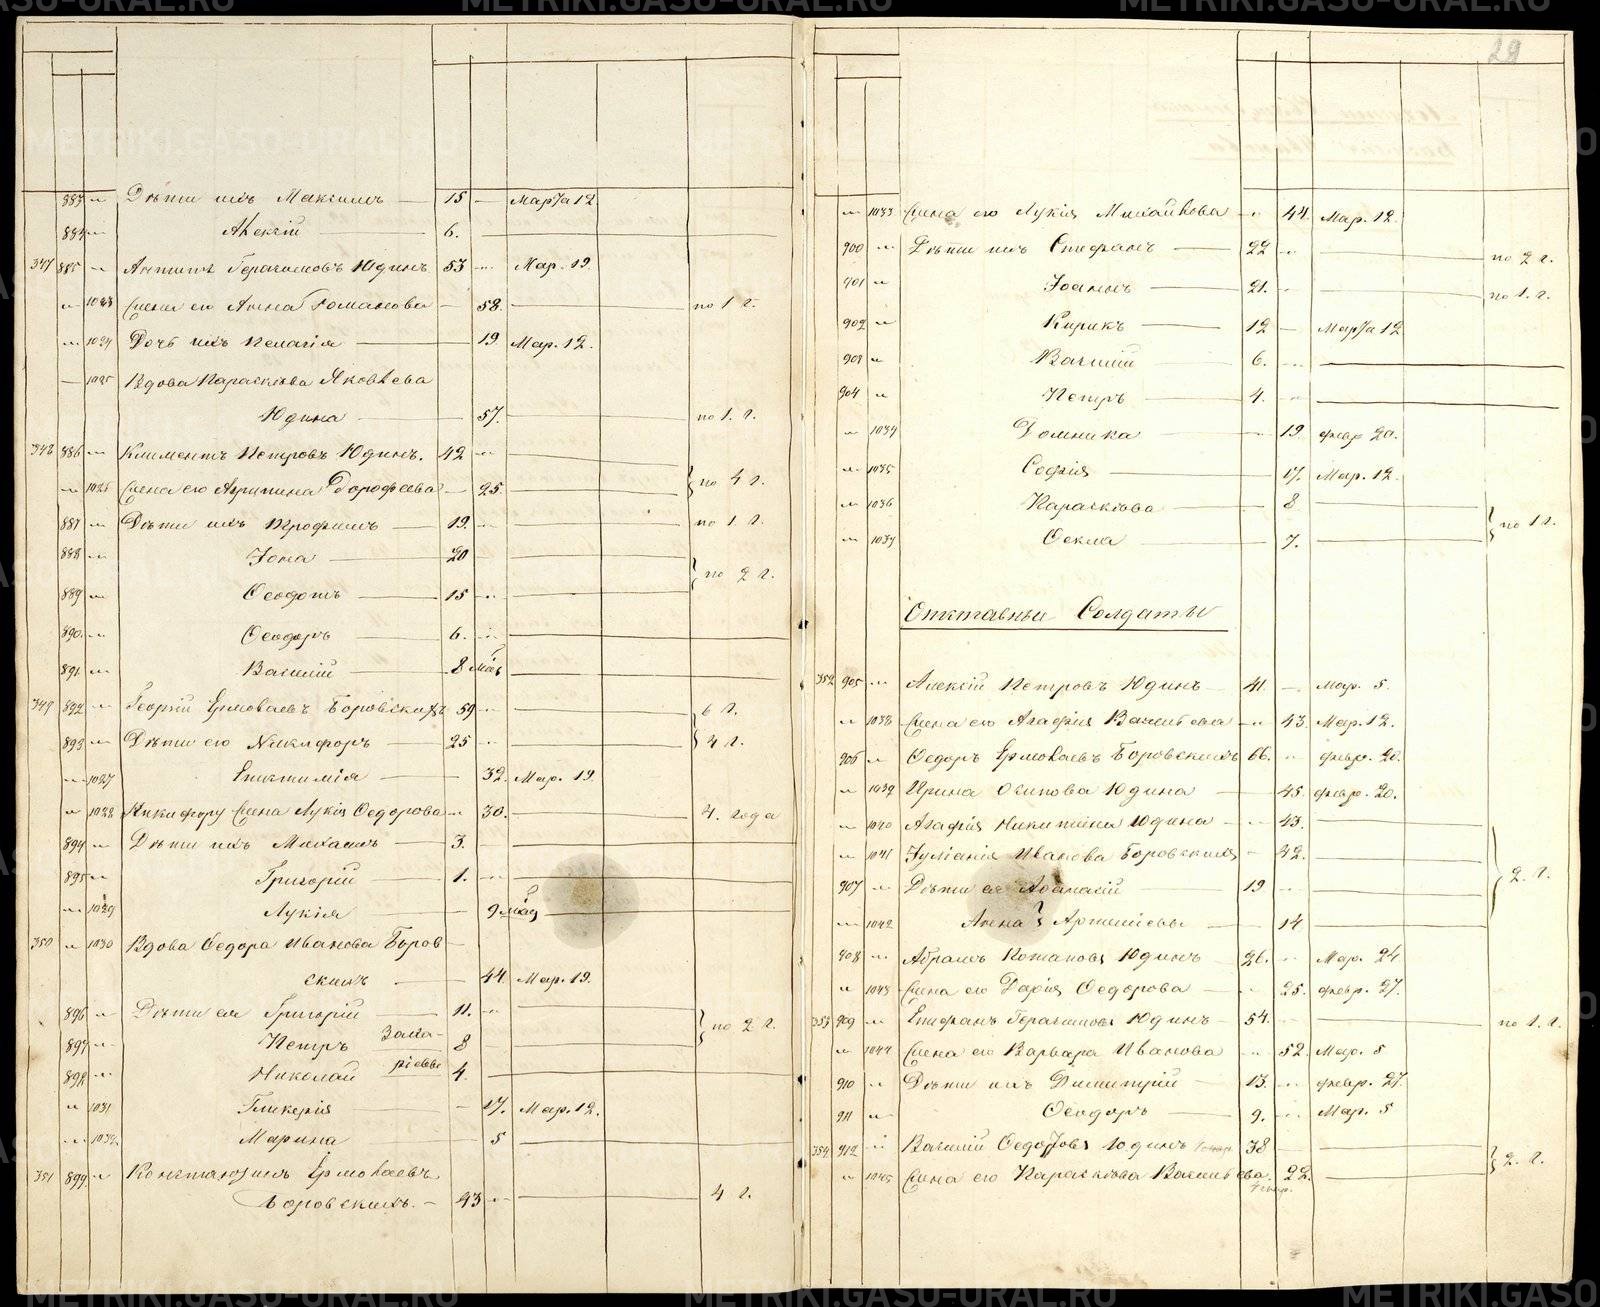 883 " Дѣти ихъ Максимъ 15 Марта 12
884 " Алексѣй 6.
347 885 " Антипъ Герасимовъ Юдинъ 53 " Мар. 19.
" 1023 Жена его Анна Романова 58. по 1 г.
" 1024 Дочь ихъ Пелагія 19 Мар. 12.
1025 Вдова Параскѣва Яковлева
Юдина 57. по 1. г.
348 886 " Климентъ Петровъ Юдинъ. 42 "
" 1026 Жена его Агрипина Дорофеева 25. по 4 г.
887 " Дѣти ихъ Трофимъ 19. " по 1 г.
888 " Іона 20
889 " Ѳеодотъ 15 " по 2 г.
890. " Ѳеодоръ 6. "
891 " Василій 8 мѣс
349 892 " Георгій Ермолаевъ Боровскихъ 59 " 6 г.
893 " Дѣти его Никифоръ 25 " 4 г.
" 1027 Епистимія 32. Мар. 19.
" 1028 Никифору жена Лукія Ѳедорова " 30. 4. года
894 " Дѣти ихъ Михаилъ 3.
895 " Григорій 1. "
" 1029 Лукія 9 мѣс
350 " 1030 Вдова Ѳедора Иванова Боров
скихъ 44. Мар. 19.
896 " Дѣти ея Григорій 11. " по 2 г.
897 " Петръ Заха- 8
898 " Николай ріевы 4.
" 1031 Гликерія 17. Мар. 12.
" 1032. Марина 5
351 899 " Константинъ Ермолаевъ
Боровскихъ. 43 " 4 г.
29
" 1033 Жена его Лукія Михайлова " 44. Мар. 12.
900 " Дѣти ихъ Стефанъ 22 " по 2 г.
901 " Іоаннъ 21. " по 1. г.
902 " Кирикъ 12 Марта 12
903 " Василій 6. "
904 " Петръ 4. "
" 1034 Домника 19 февр 20.
" 1035 Софія 17. Мар. 12.
" 1036 Параскѣва 8
по 1 г.
" 1037 Ѳекла 7.
Отставные Солдаты
352 905 " Алексѣй Петровъ Юдинъ 41. Мар. 5.
" 1038 Жена его Агафія Васильева " 43. Мар. 12.
906 " Ѳедоръ Ермолаевъ Боровскихъ 66. " февр. 20.
" 1039 Ирина Осипова Юдина 45. февр. 20.
" 1040 Агафія Никитина Юдина " 43.
" 1041 Іуліанія Иванова Боровскихъ 42.
907 " Дѣти ея Афанасій 19 " 2. г.
" 1042 Анна Артемьевы 14
908 " Абрамъ Потаповъ Юдинъ 26. " Мар. 24
" 1043 Жена его Дарія Ѳедорова " 25. февр. 27.
353 909 " Епифанъ Герасимовъ Юдинъ 54. " по 1. г.
" 1044 Жена его Варвара Иванова " 52. Мар. 5
910 " Дѣти ихъ Димитрій 13. " февр. 27.
911 " Ѳеодоръ 9. " Мар. 5
354 912 " Василій Ѳедотовъ Юдинъ 38
2. г.
" 1045 Жена его Параскѣва Васильева. 22.
METRIKI.GASO-URAL.RU